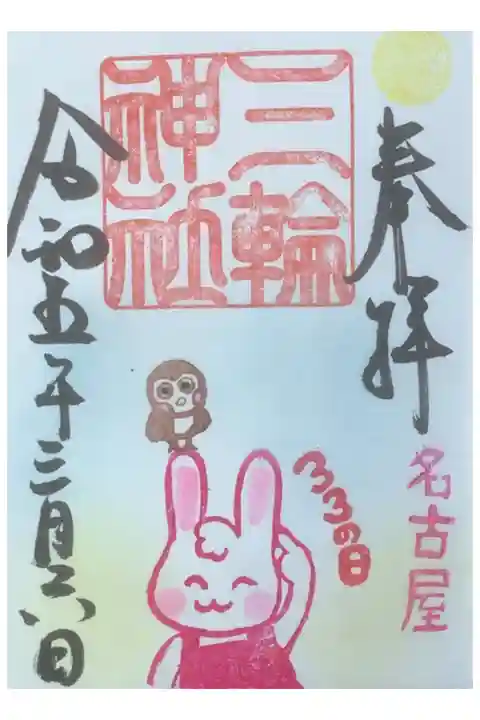 奉拝
名古屋
三輪
神社
33の日
令和五年三月六日